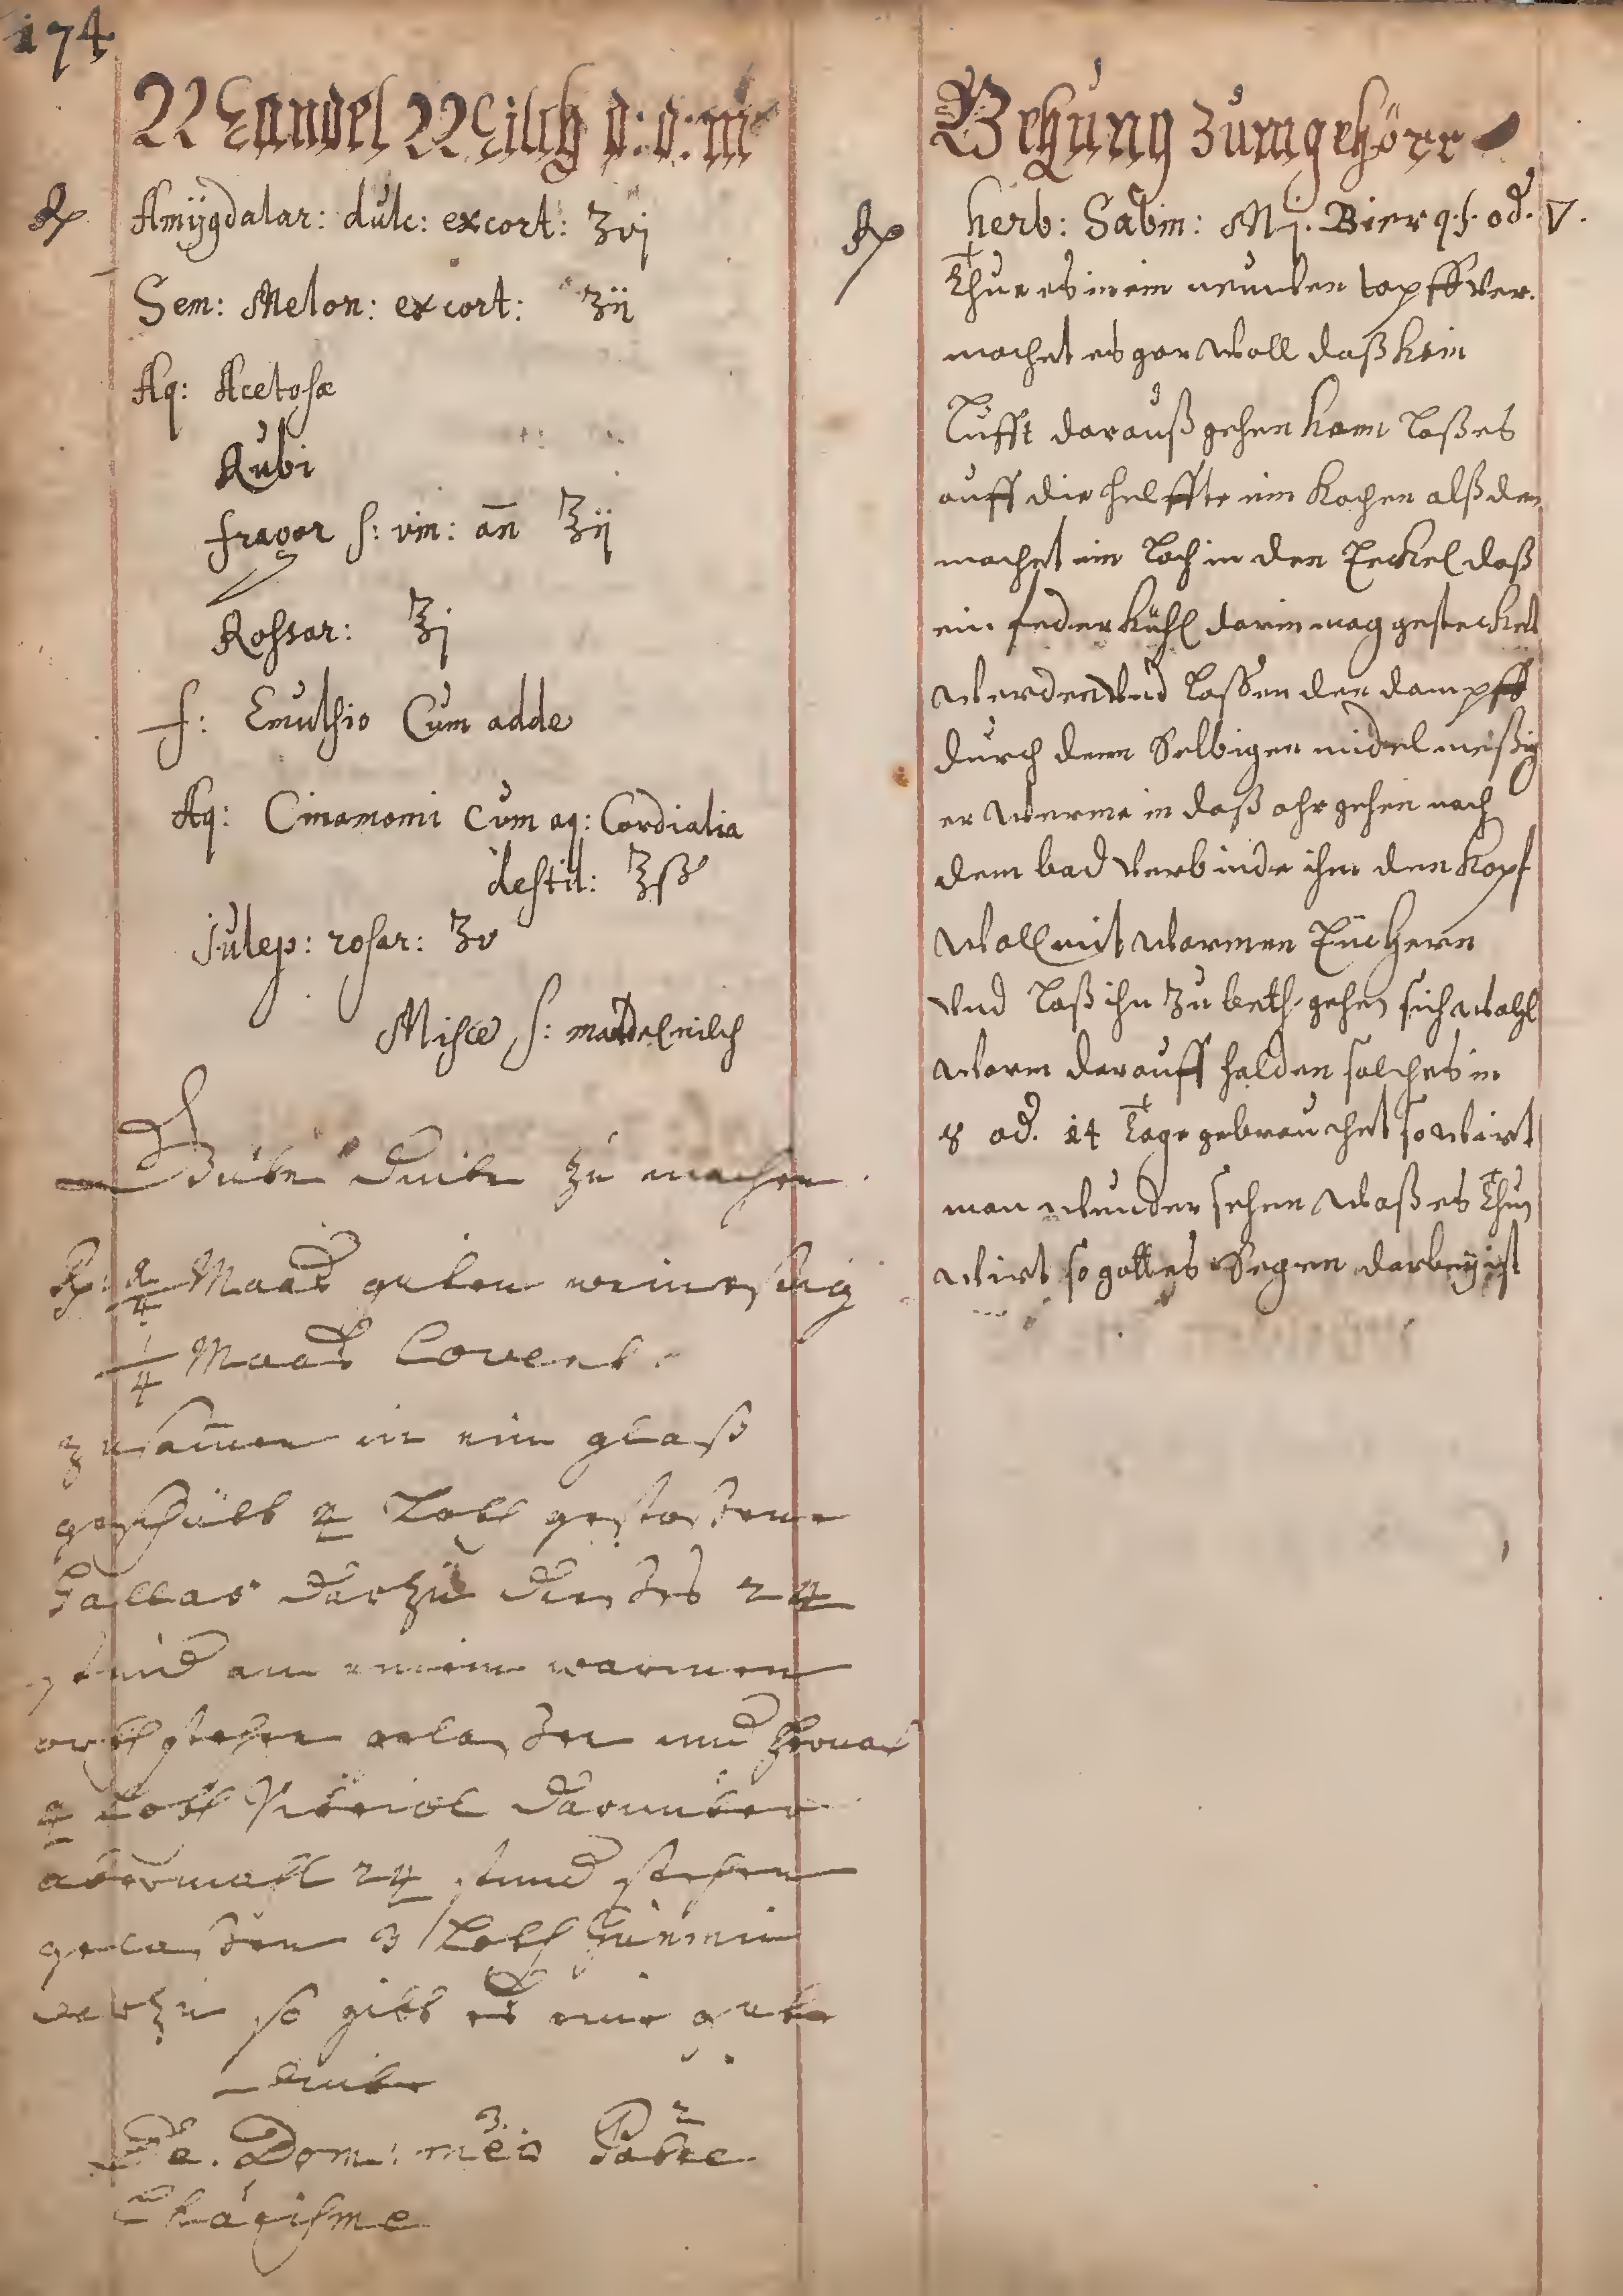 174
Mandel Milch d: d: m
Rp Amÿgdalar: dulc: excort: ʒvj
Sem: Melon: excort: ʒij
Aq: Acetosæ
Rubi
fragor s: vin: an̄ ℥ij
Rossar: ℥j
f: Emulsio Cum adde
Aq: Cinamomi cum aq: Cordialia
destil: ℥ß
Julep: rosar: ℥v
Misce f: mandelmilch
Gute Dinte zu machen.
Rp: 2/4 Maas guten weinessig
1/4 Maas Covent.
zusam̄en in ein glaß
geschütt 4 Loth gestossene
Gallas darzu dieses 24
stund an einem warmen
orth stehen gelassen und hernach
4 Loth Vitriol darunter
abermahl 24 stund stehen
gelassen 3 Loth Gummi
darzu so gibt es eine gute
dinte
De. Dom: meo Patre
Charisme
Behung zum gehörr
Rp herb: Sabin: Mj. Bier q.s. od. ▽.
Thue es in ein neuwen topff ver-
machet es gar woll daß kein
Lufft darauß gehen kann Laß es
auff die helffte ein kochen alß dan
machet ein Loch in den Deckel daß
ein feder kühl darin mag gestecket
werden und Lassen den dampff
durch dem Selbigen midelmeßig
er werme in daß ohr gehen nach
dem bad verbinde ihm den kopf
woll mit warmen Tüchern
und Laß ihn zu beth gehen sich wohl
warm darauff halden solches in
8 od. 14 Tage gebrauchet so wirt
man wunder sehen waß es Thun
wirt so gottes Segen darbey ist